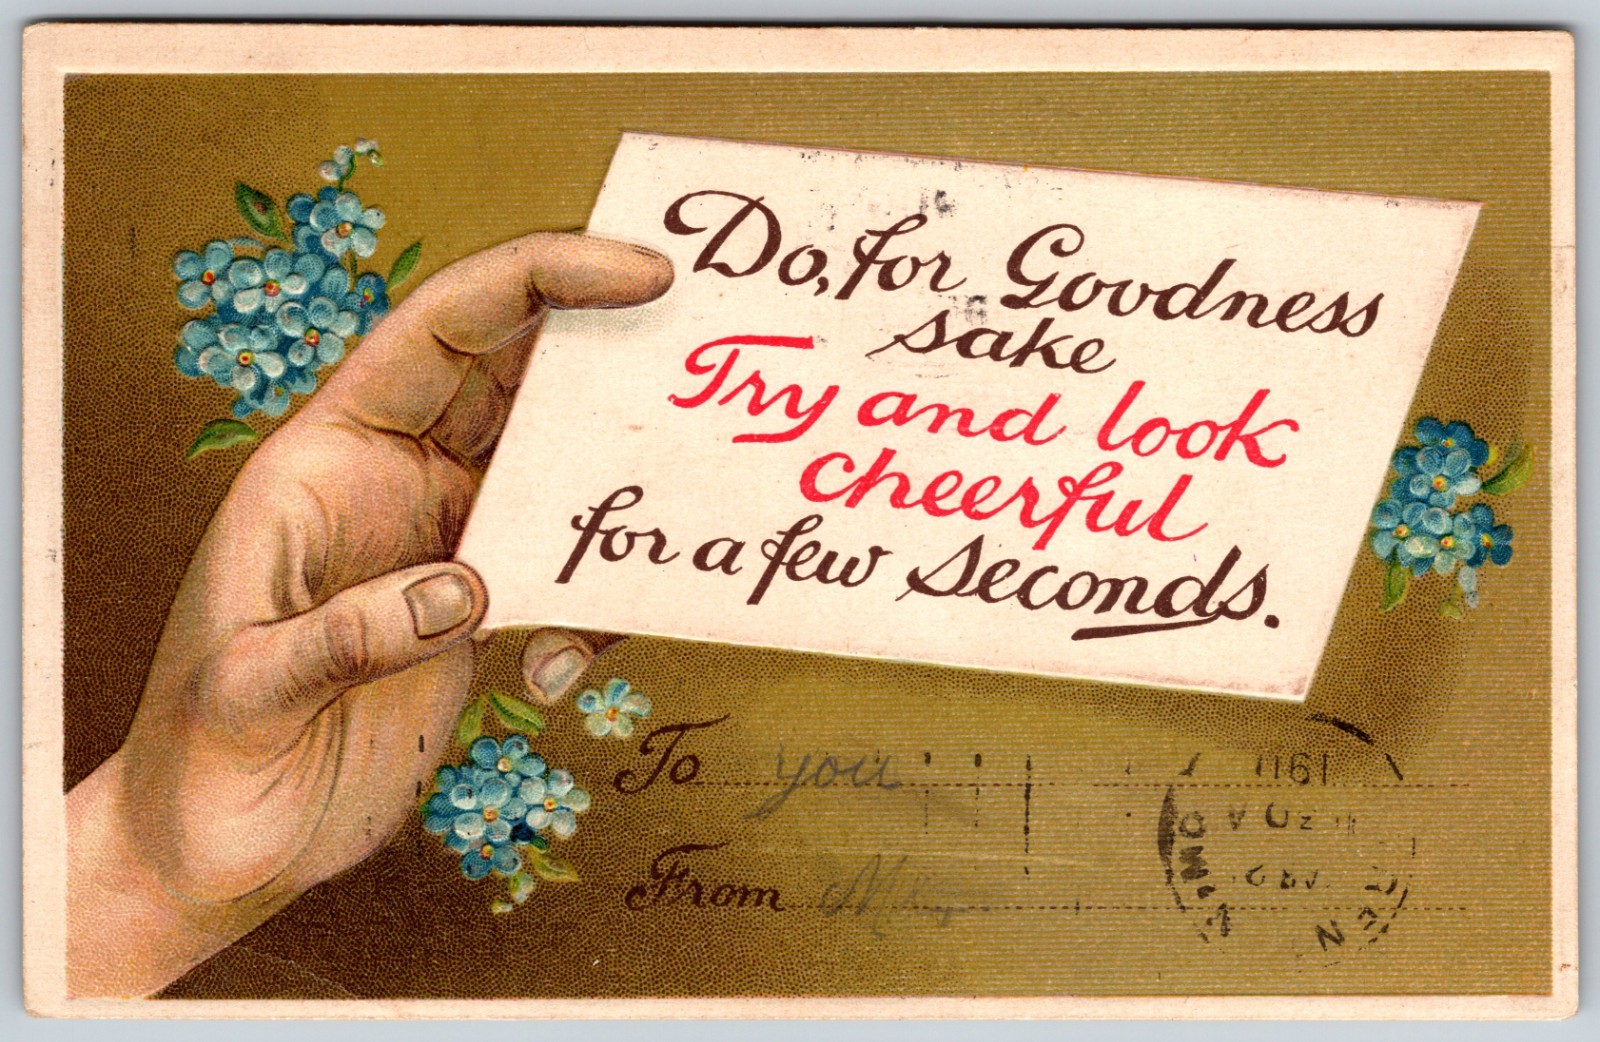 Do, for Goodness
sake
Try and look
cheerful
for a few Seconds.
To you
From
1911